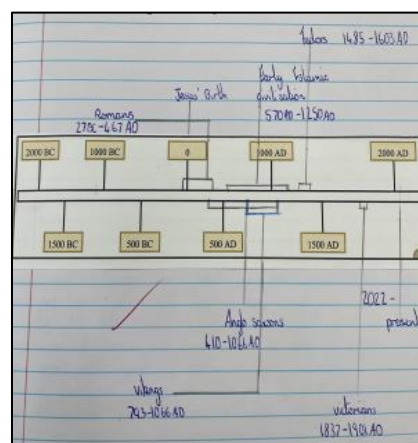 Tudors 1485-1603AD
Jesus' Birth
Early Islamic
civilisation
570AD-1250AD
Romans
27BC-467AD
2000 BC
1000 BC
0
1000 AD
2000 AD
1500 BC
500 BC
500 AD
1500 AD
2022-
present
Anglo saxons
410-1066AD
Vikings
793-1066AD
Victorians
1837-1901AD